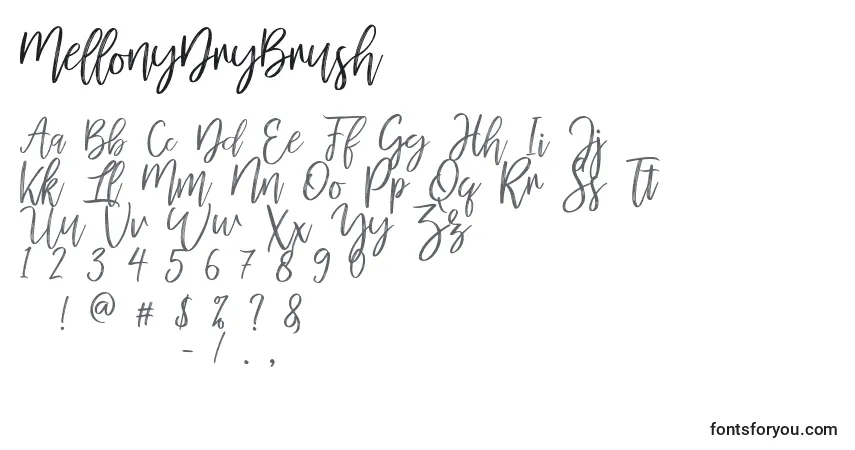 MellonyDryBrush
Aa Bb Cc Dd Ee Ff Gg Hh Ii Jj
Kk Ll Mm Nn Oo Pp Qq Rr Ss Tt
Uu Vv Ww Xx Yy Zz
1 2 3 4 5 6 7 8 9 0
! @ # $ % ? &
- / . ,
fontsforyou.com